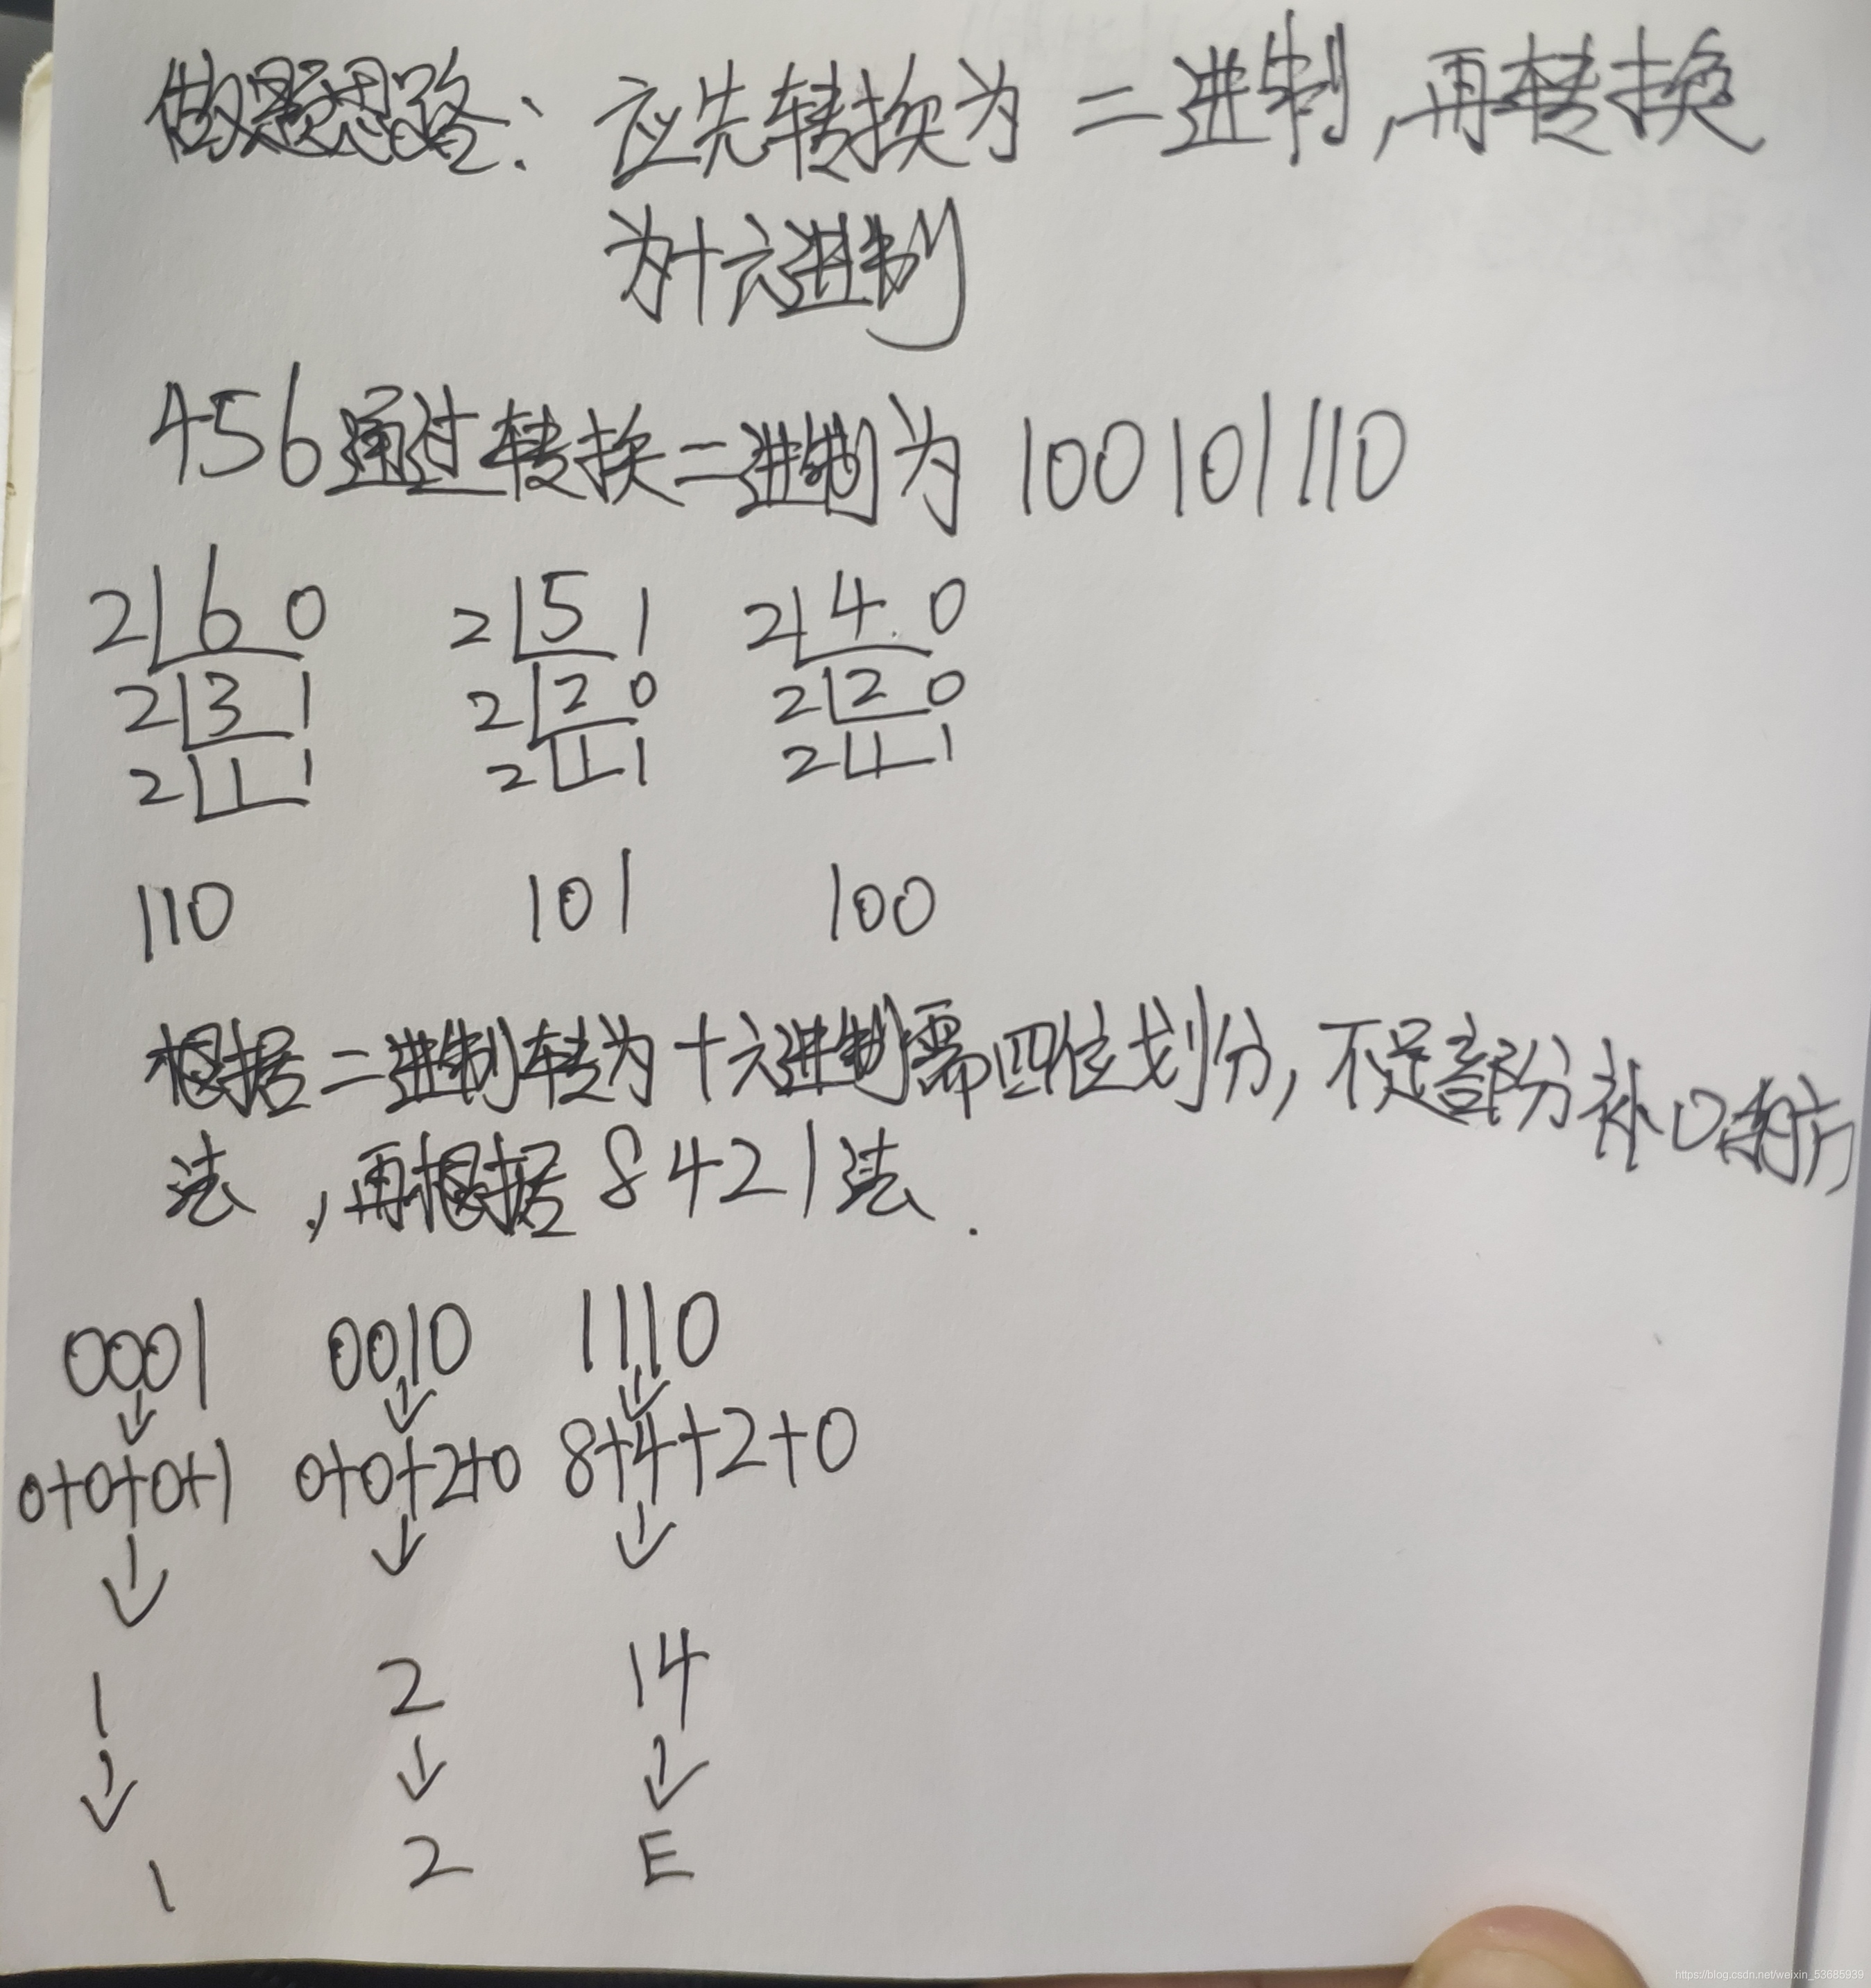 做题思路：应先转换为二进制，再转换
为十六进制
456通过转换二进制为 100101110
2 6 0 2 5 1 2 4 0
2 3 1 2 2 0 2 2 0
2 1 1 2 1 1 2 1 1
110 101 100
根据二进制转为十六进制需四位划分，不足部分补0的方
法，再根据8421法.
0001 0010 1110
↓ ↓ ↓
0+0+0+1 0+0+2+0 8+4+2+0
↓ ↓ ↓
1 2 14
↓ ↓ ↓
1 2 E
https://blog.csdn.net/weixin_53685939